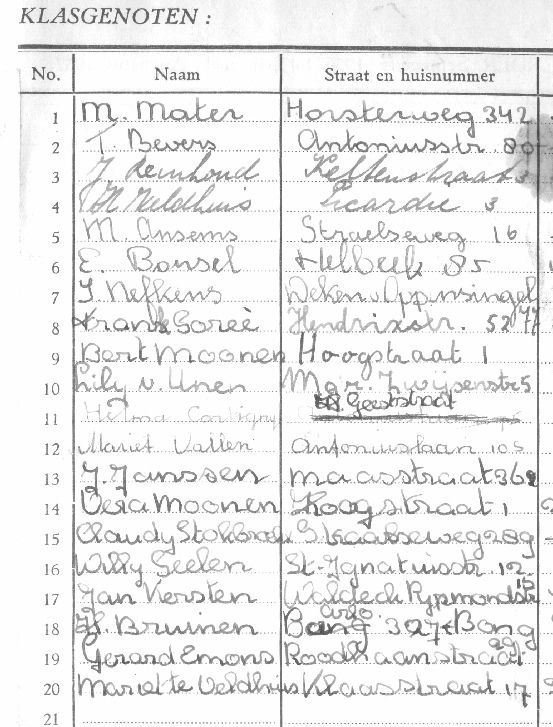 KLASGENOTEN :
No. Naam Straat en huisnummer
1 M. Mater Horsterweg 342
2 T. Bevers Antoniusstr 80
3 J Leenhoud
4 Veldhuis Picardie 3
5 M. Ansems Straelseweg 16
6 E. Bonsel Helbeek 85
7 J. Nefkens Deken v. Oppensingel
8 Frank Goreè Hendrixstr. 52 77
9 Bert Moonen Hoogstraat 1
10 Lily v. Unen Mgr. Zwijsenstr 5
11 Helma H. Geeststraat
12 Mariet Vallen Antoniuslaan 105
13 J. Janssen maasstraat 362
14 Vera Moonen Hoogstraat 1
15 Claudy Straelseweg 289
16 Willy Geelen St-Ignatiusstr. 12
17 Jan Kersten Waldeck Rypmondstr 15
18 H. Bruinen 327
19 Gerard Emons Roodhaanstraat 29
20 Mariette Veldhuis Klaasstraat 17
21